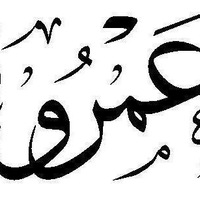 عَمْرُو